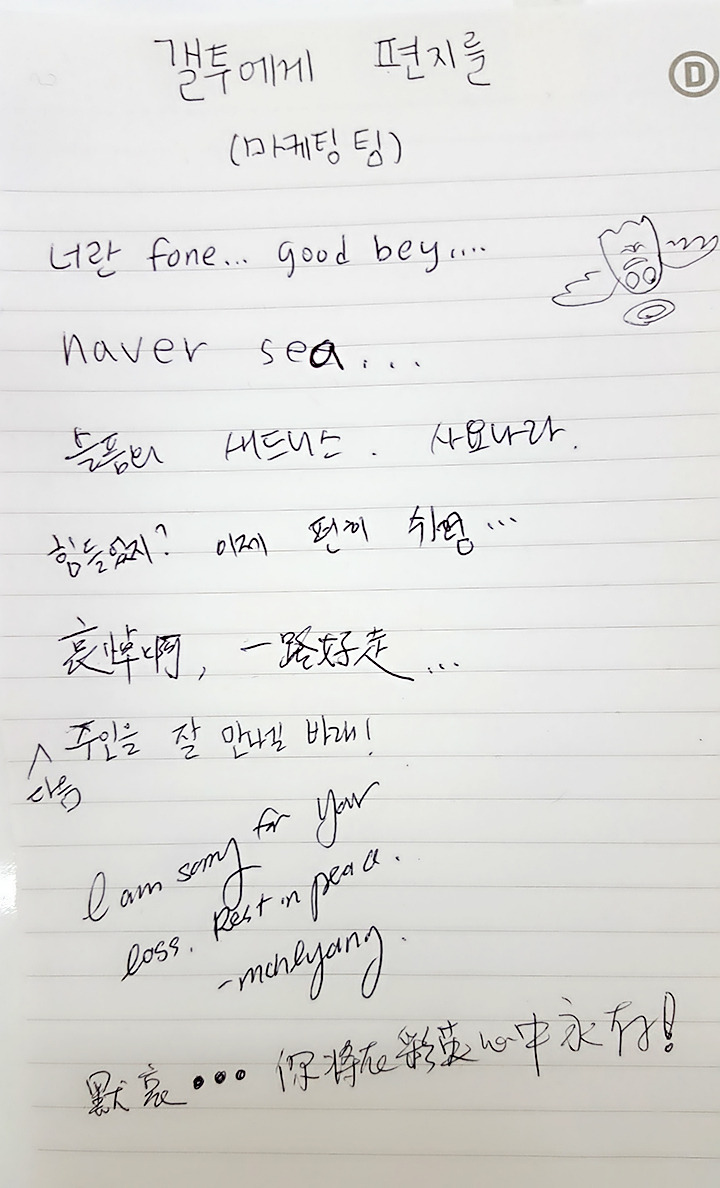 갤투에게 편지를
D
(마케팅 팀)
너란 fone... good bey....
naver sea...
슬픔의 새드니스. 사요나라.
힘들었지? 이제 편히 쉬렴...
哀悼啊, 一路好走...
주인을 잘 만나길 바래!
다음
I am sorry for your
loss. Rest in peace.
默哀... 你将在彩英心中永存!